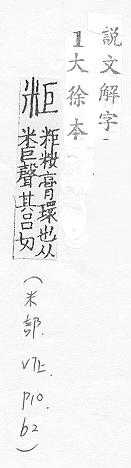 說文解字-
1大徐本
粔 粔籹膏環也从
米巨聲其呂切
(米部. v7上. p10. b2)